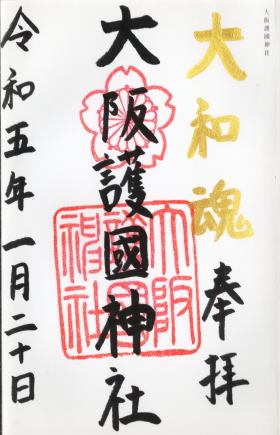 大阪護國神社
大和魂
奉拝
大阪護國神社
大阪護國神社
令和五年一月二十日